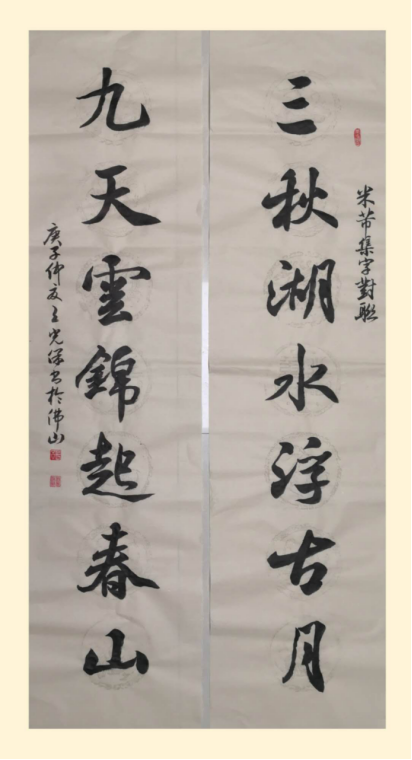 米芾集字對聯
三秋湖水浮古月
九天雲錦起春山
庚子仲夏王光保书於佛山